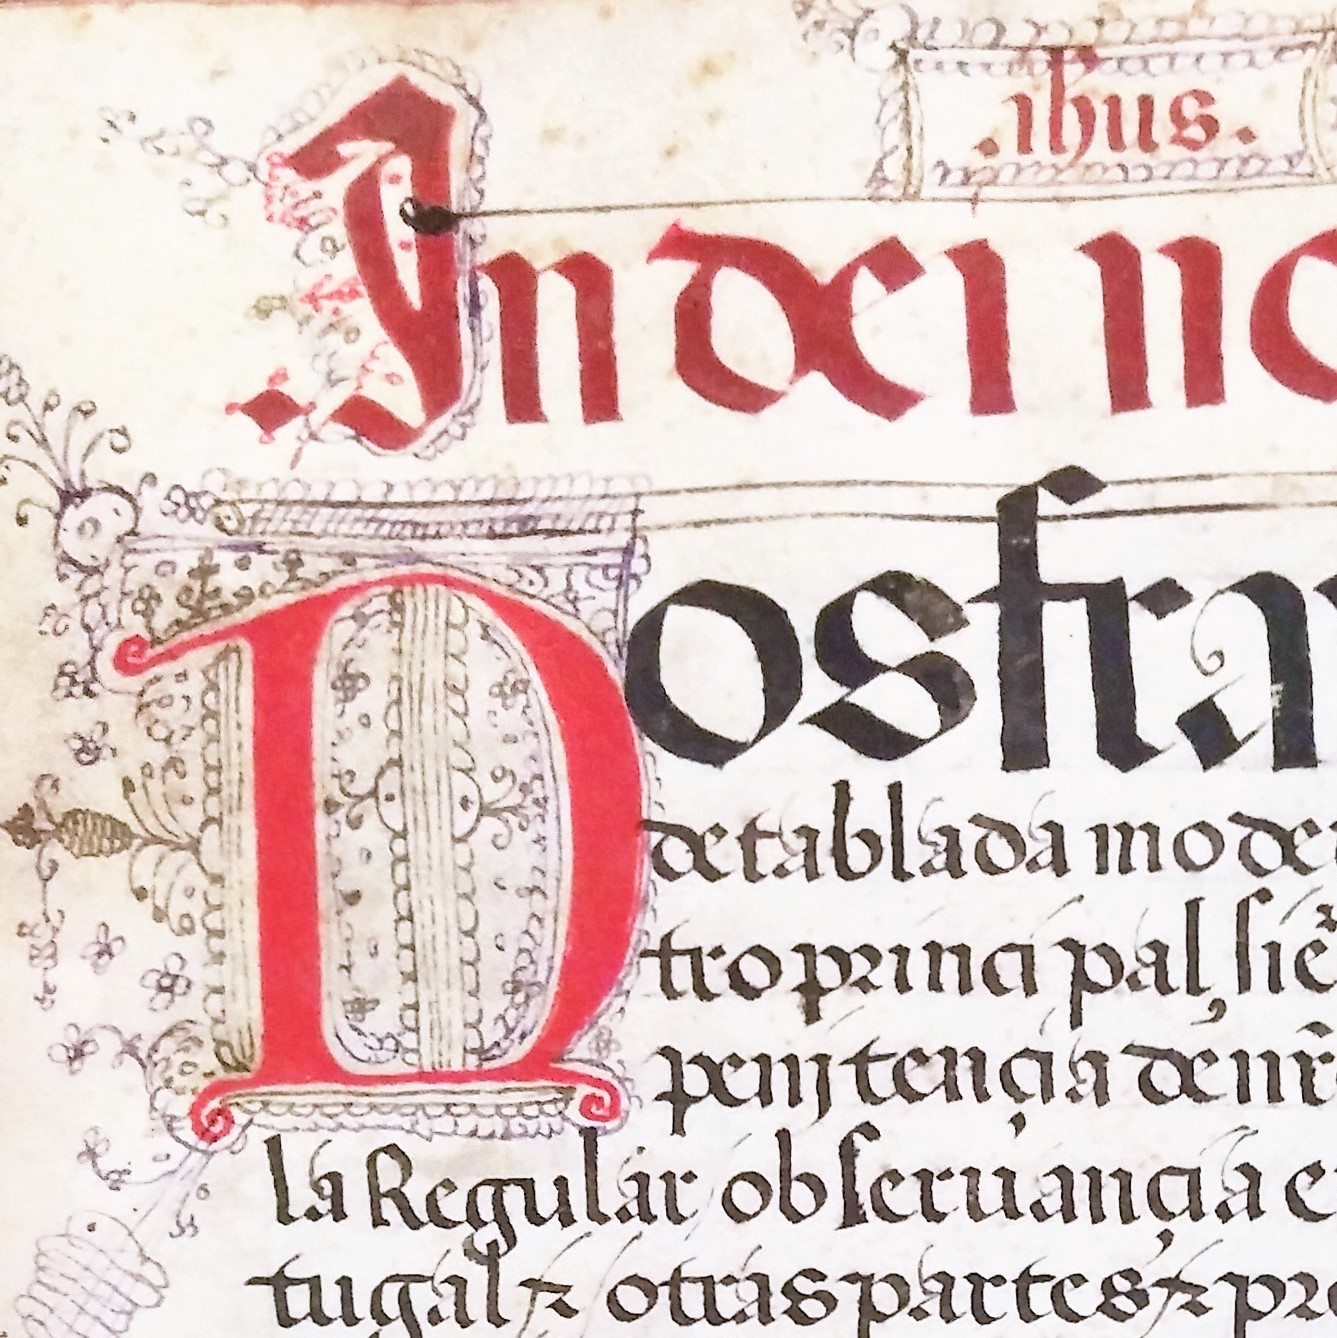 .ihus.
In dei no
Nos fra
de tablada mo de
tro principal, siē
penjtençia de nr̃
la Regular obseruançia e
tugal ⁊ otras partes ⁊ pro